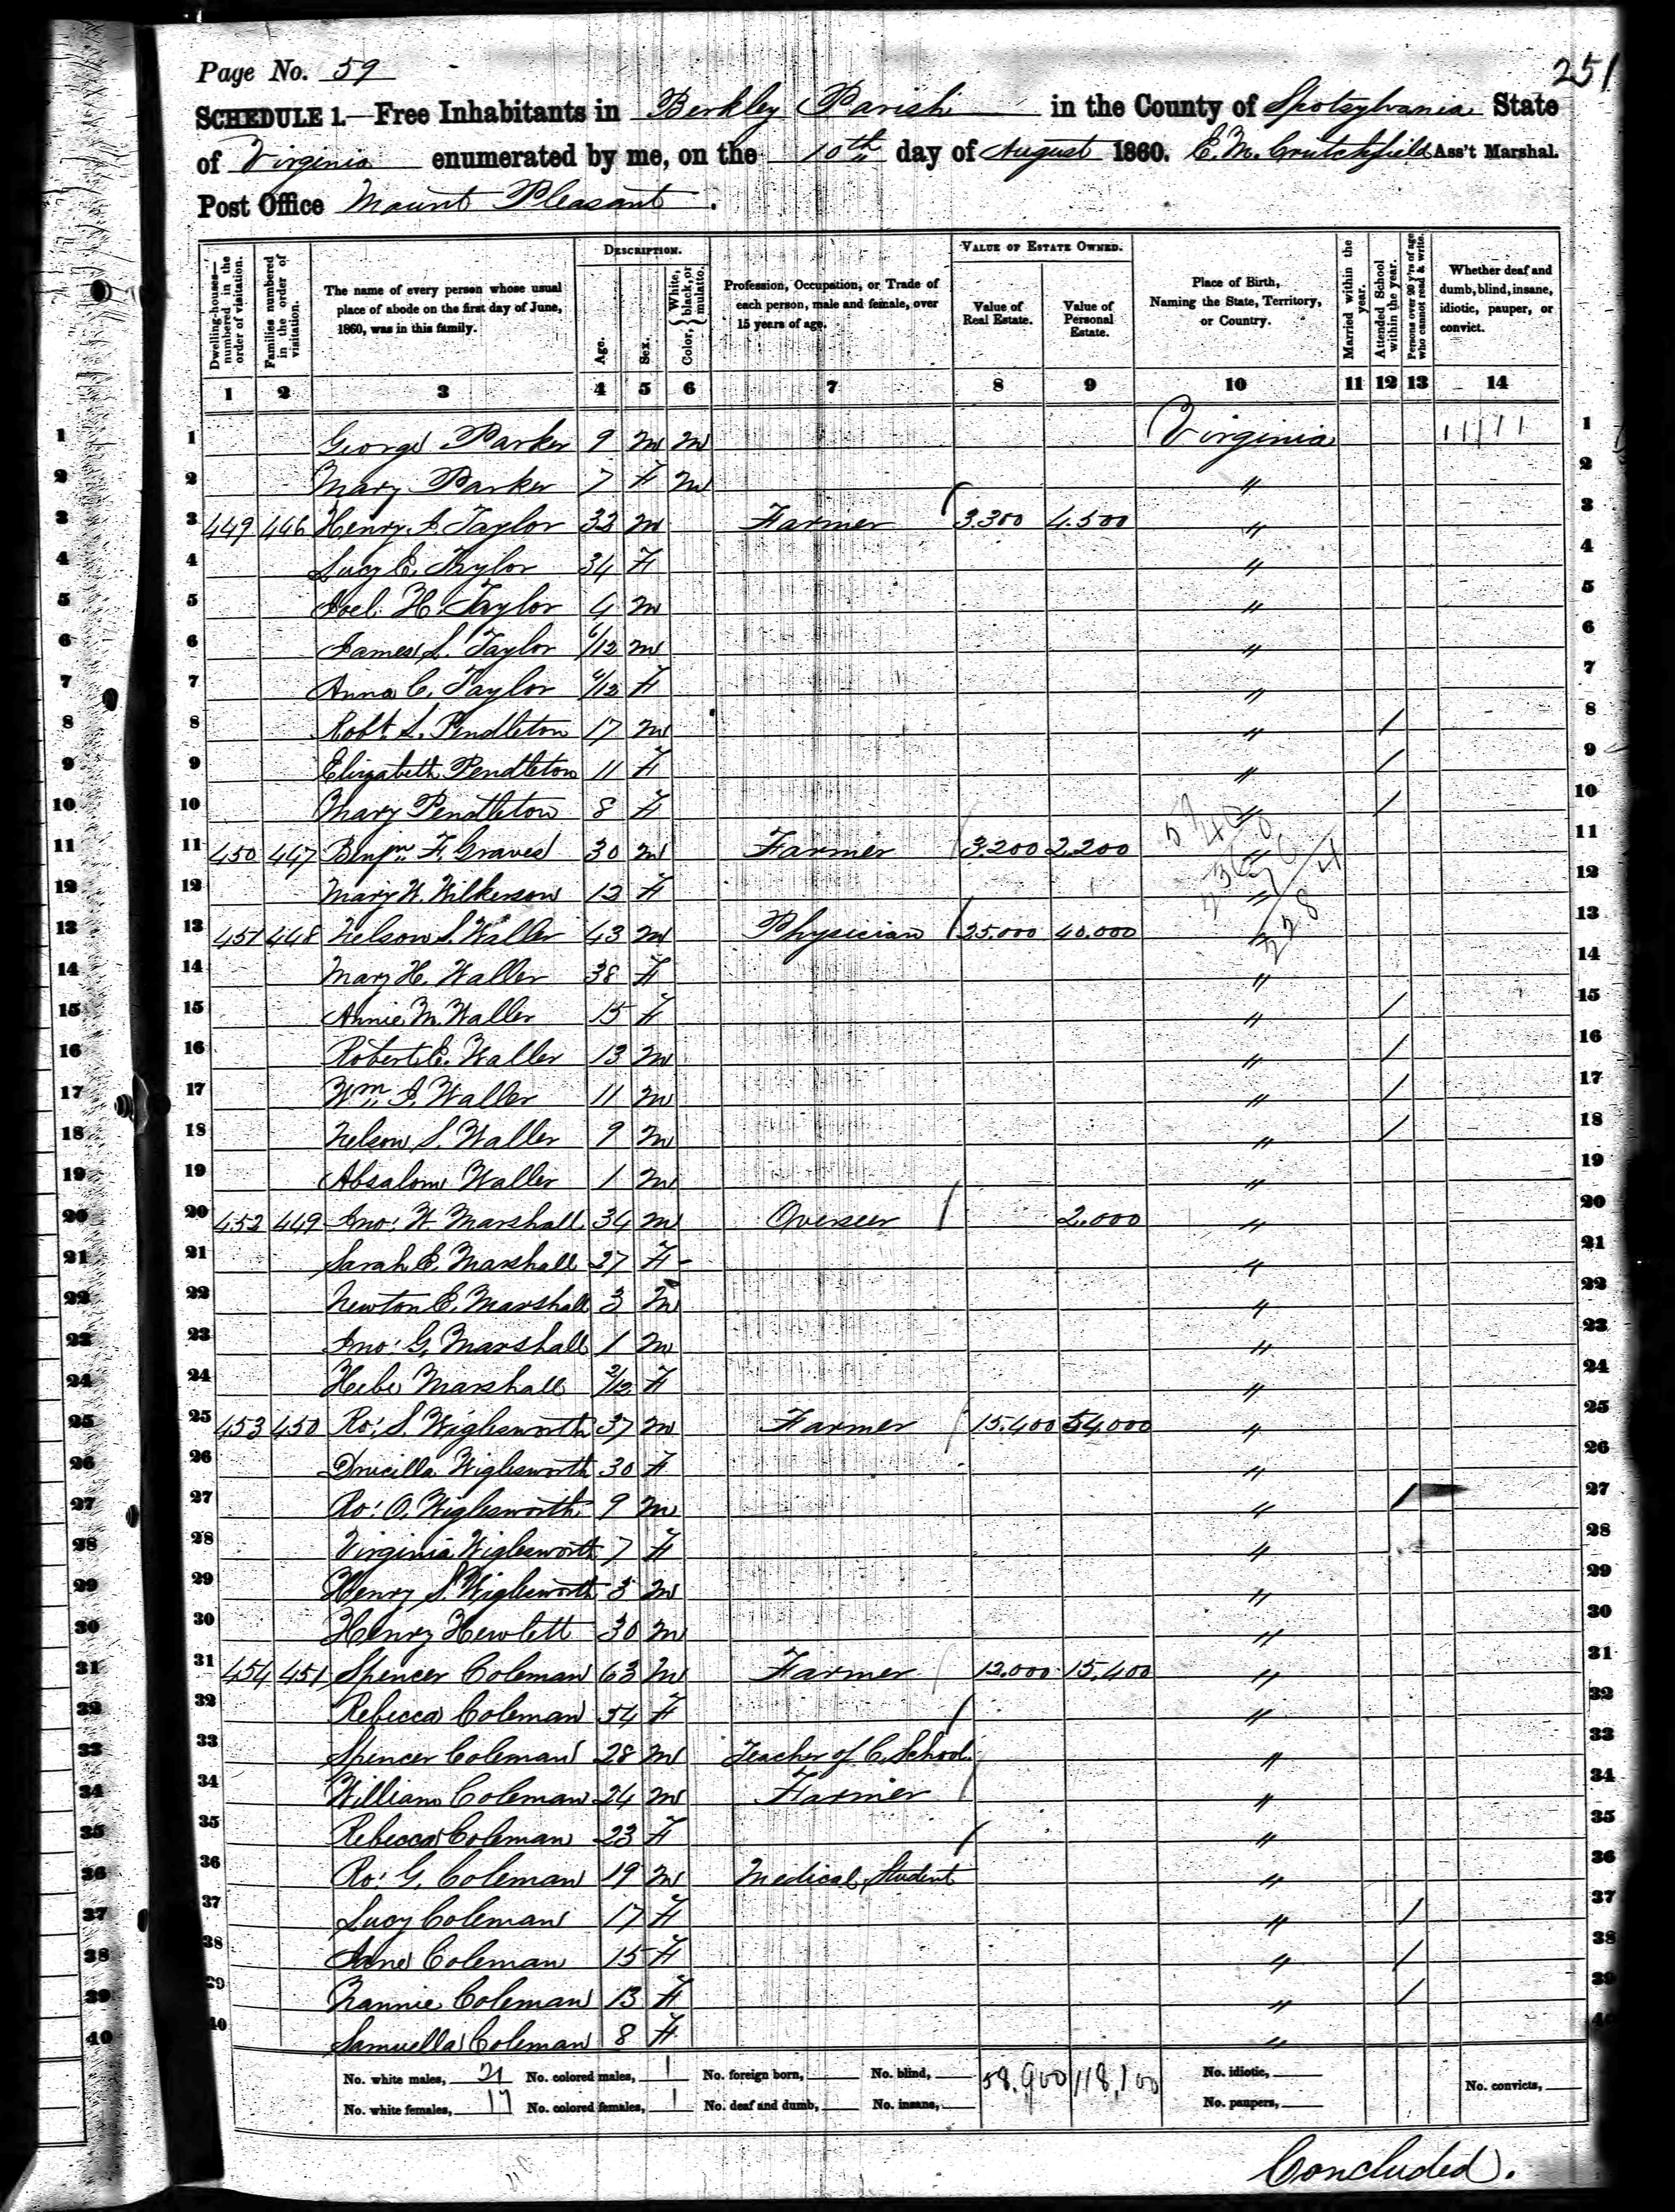 251
Page No. 59
SCHEDULE 1.—Free Inhabitants in Berkley Parish in the County of Spotsylvania State
of Virginia enumerated by me, on the 10th day of August 1860. E. M. Crutchfield Ass't Marshal.
Post Office Mount Pleasant.
DESCRIPTION. VALUE OF ESTATE OWNED.
Dwelling-houses—numbered in the order of visitation. Families numbered in the order of visitation. The name of every person whose usual place of abode on the first day of June, 1860, was in this family. Age. Sex. Color, {White, black, or mulatto. Profession, Occupation, or Trade of each person, male and female, over 15 years of age. Value of Real Estate. Value of Personal Estate. Place of Birth, Naming the State, Territory, or Country. Married within the year. Attended School within the year. Persons over 20 y'rs of age who cannot read & write. Whether deaf and dumb, blind, insane, idiotic, pauper, or convict.
1 2 3 4 5 6 7 8 9 10 11 12 13 14
1 George Parker 9 M M Virginia 11111 1
2 Mary Parker 7 F M " 2
3 449 446 Henry A. Taylor 32 M Farmer 3.300 4.500 " 3
4 Lucy E. Taylor 34 F " 4
5 Joel H. Taylor 4 M " 5
6 James L. Taylor 6/12 M " 6
7 Anna C. Taylor 6/12 F " 7
8 Robt. S. Pendleton 17 M " / 8
9 Elizabeth Pendleton 11 F " / 9
10 Mary Pendleton 8 F " / 10
11 450 447 Benjn. F. Graves 30 M Farmer 3.200 2.200 " 11
12 Mary W. Wilkerson 12 F " 12
13 451 448 Nelson S. Waller 43 M Physician 25.000 40.000 " 13
14 Mary H. Waller 38 F " 14
15 Annie M. Waller 15 F " / 15
16 Robert E. Waller 13 M " / 16
17 Wm. J. Waller 11 M " / 17
18 Nelson S. Waller 9 M " / 18
19 Absalom Waller 1 M " 19
20 452 449 Jno: W. Marshall 34 M Overseer 2.000 " 20
21 Sarah E. Marshall 27 F " 21
22 Newton E. Marshall 3 M " 22
23 Jno: G. Marshall 1 M " 23
24 Hebe Marshall 2/12 F " 24
25 453 450 Ro: S. Wiglesworth 37 M Farmer 15.400 54.000 " 25
26 Drucilla Wiglesworth 30 F " 26
27 Ro: O. Wiglesworth 9 M " / 27
28 Virginia Wiglesworth 7 F " 28
29 Henry S. Wiglesworth 3 M " 29
30 Henry Hewlett 30 M " 30
31 454 451 Spencer Coleman 63 M Farmer 12.000 15.400 " 31
32 Rebecca Coleman 54 F " 32
33 Spencer Coleman 28 M Teacher of C. School " 33
34 William Coleman 24 M Farmer " 34
35 Rebecca Coleman 23 F " 35
36 Ro: G. Coleman 19 M Medical Student " 36
37 Lucy Coleman 17 F " / 37
38 Jane Coleman 15 F " / 38
39 Nannie Coleman 13 F " / 39
40 Samuella Coleman 8 F " 40
No. white males, 21 No. colored males, 1 No. foreign born, No. blind, 58,900 118,100 No. idiotic, No. convicts,
No. white females, 17 No. colored females, 1 No. deaf and dumb, No. insane, No. paupers,
Concluded.